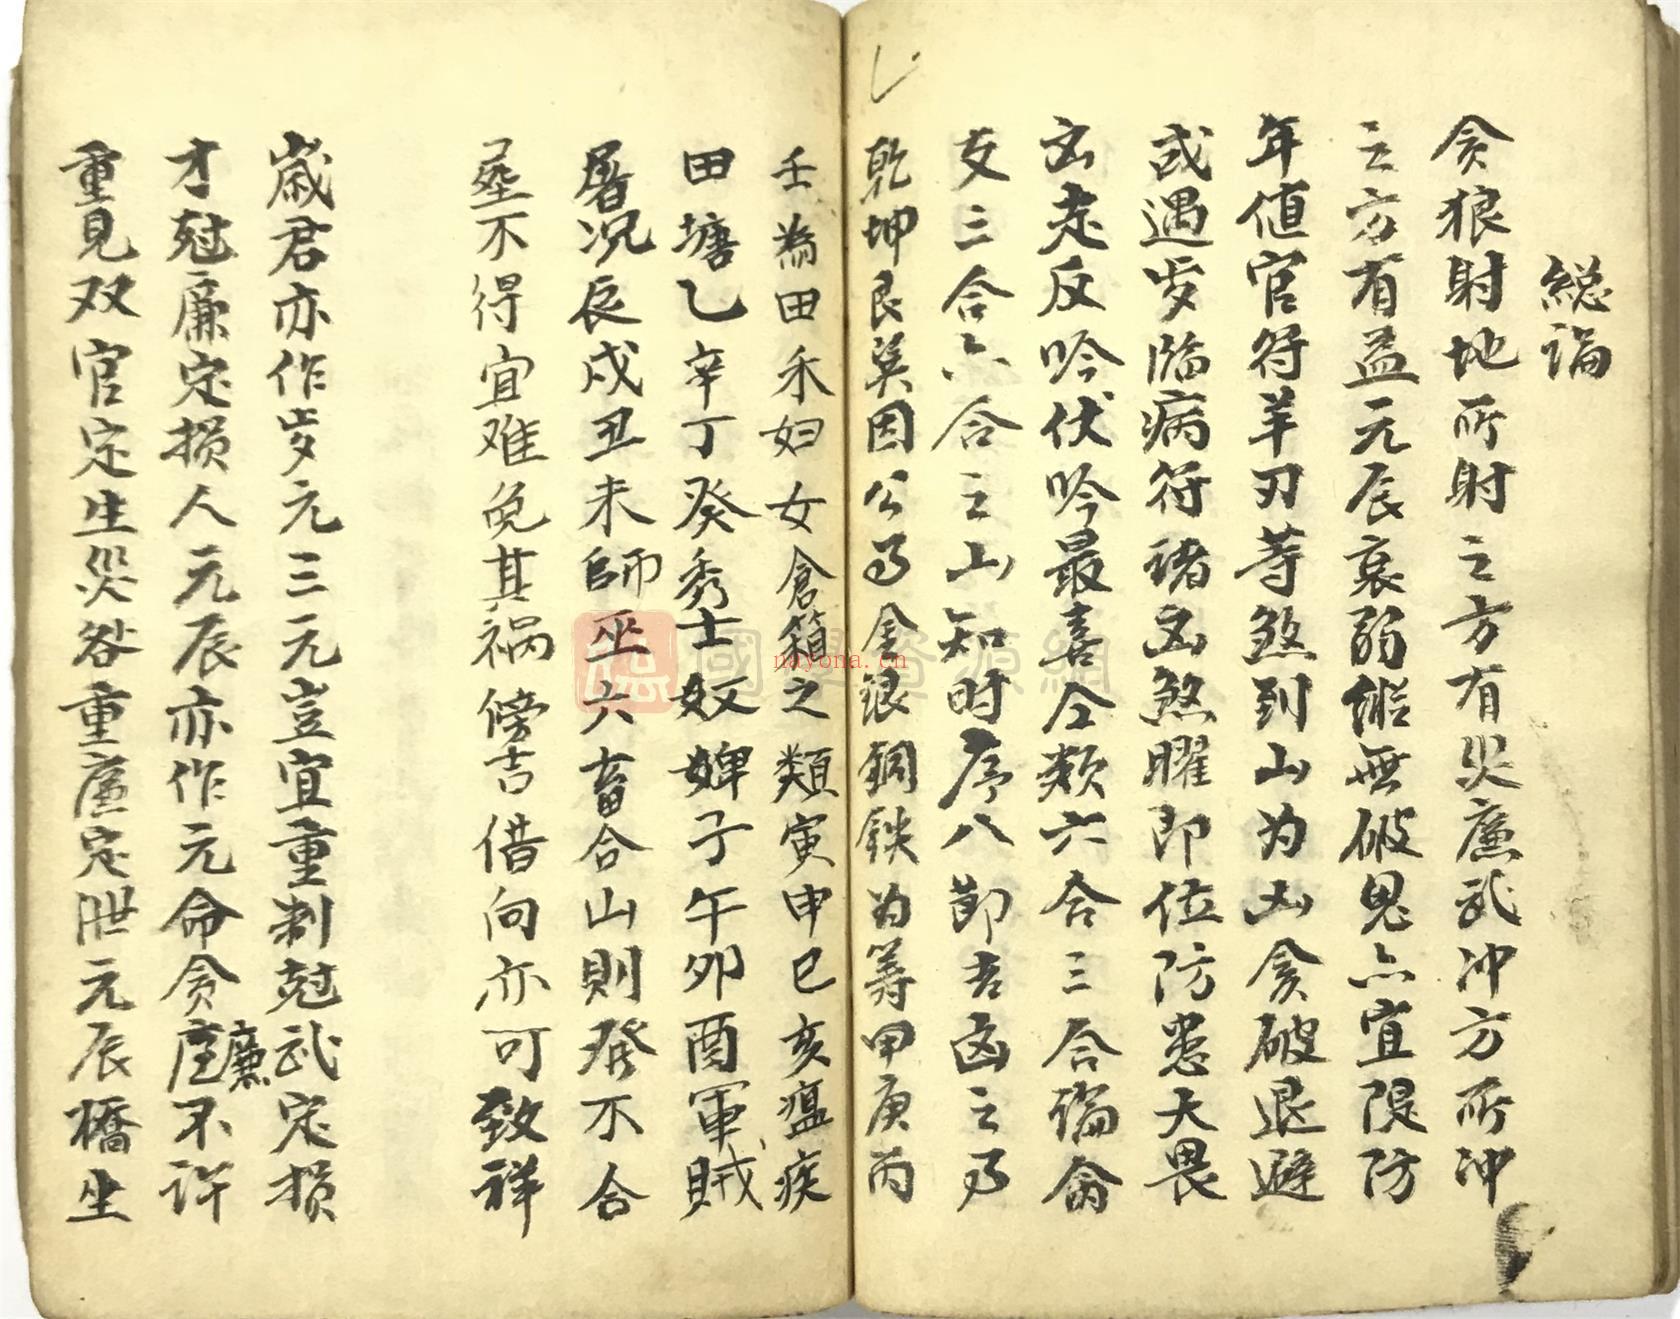 総論
貪狼射地所射之方有災廉武冲方所冲
之方有益元辰衰弱継無破鬼亦宜隄防
年值官符羊刃等煞到山为凶貪破退避
或遇岁临病符诸凶煞曜即位防患大畏
凶走反吟伏吟最喜仝類六合三合编禽
支三合六合之山知时序八節吉凶之乃
乾坤艮巽因公乃金银铜鉄为筭甲庚丙
壬為田禾妇女倉箱之類寅申巳亥瘟疾
田塘乙辛丁癸秀士奴婢子午卯酉軍賊
屠况辰戍丑未師巫六畜合山則癸不合
不得宜难免其祸傍吉借向亦可致祥
歳君亦作岁元三元豈宜重剌尅武定损
才尅廉定损人元辰亦作元命贪廉不许
重見双官定生災咎重廉定泄元辰橋生
國學資源網
nayona.cn